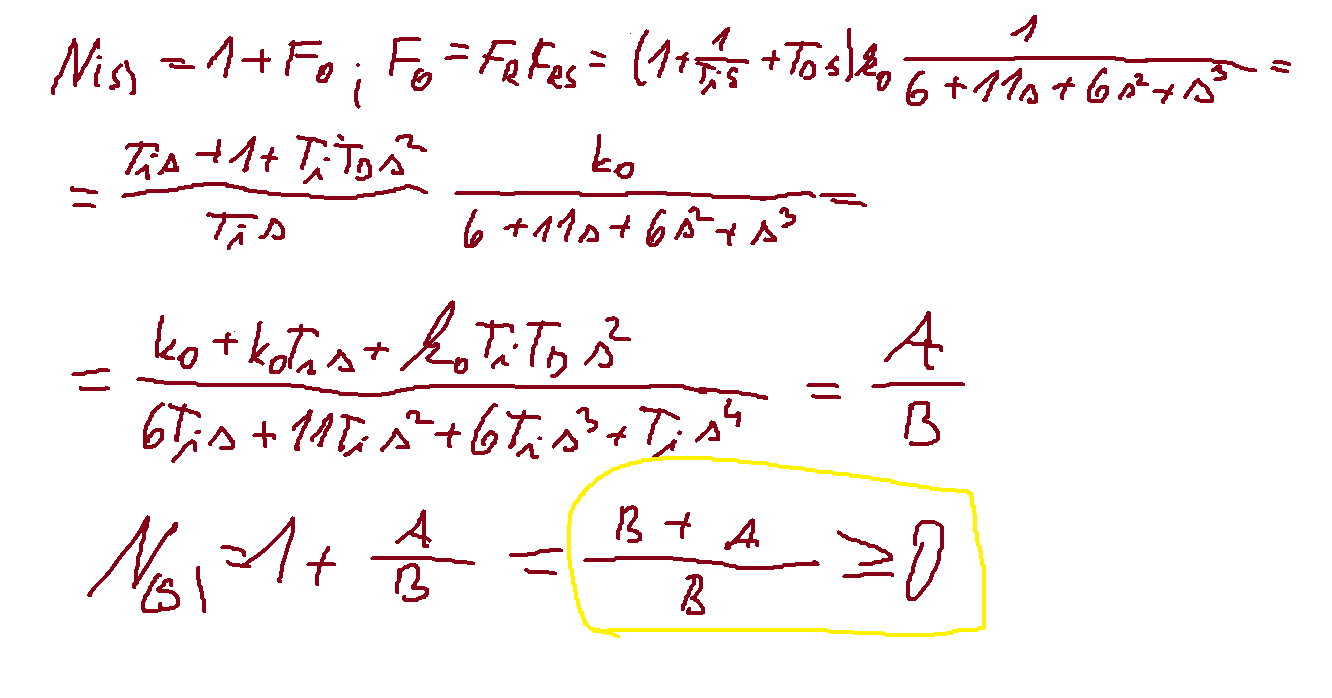 N(s) = 1 + F₀ ; F₀ = F_R F_RS = (1 + 1/(T_i s) + T_D s) k₀ 1/(6 + 11s + 6s² + s³) =
= (T_i s + 1 + T_i T_D s²)/(T_i s) k₀/(6 + 11s + 6s² + s³) =
= (k₀ + k₀ T_i s + k₀ T_i T_D s²)/(6T_i s + 11T_i s² + 6T_i s³ + T_i s⁴) = A/B
N(s) = 1 + A/B = (B + A)/B ≥ 0